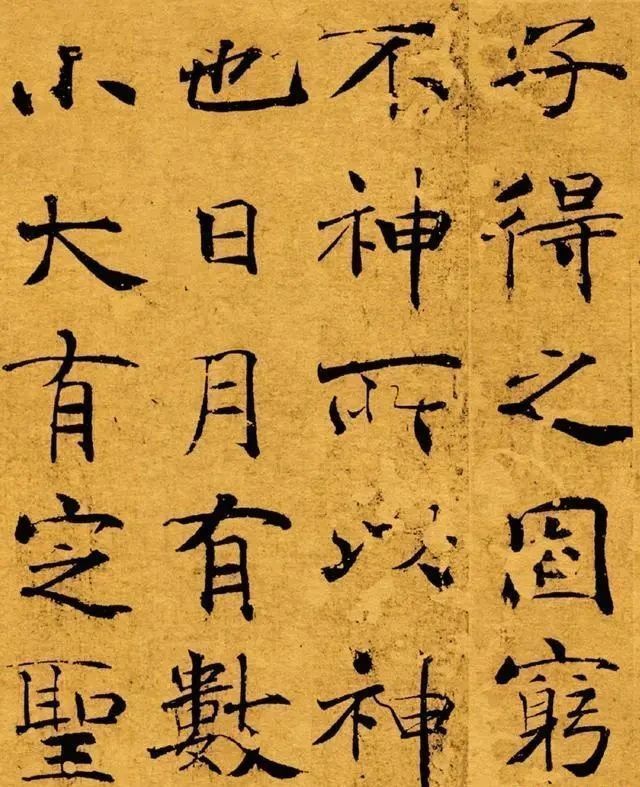 子得之固窮
不神所以神
也日月有數
小大有定聖